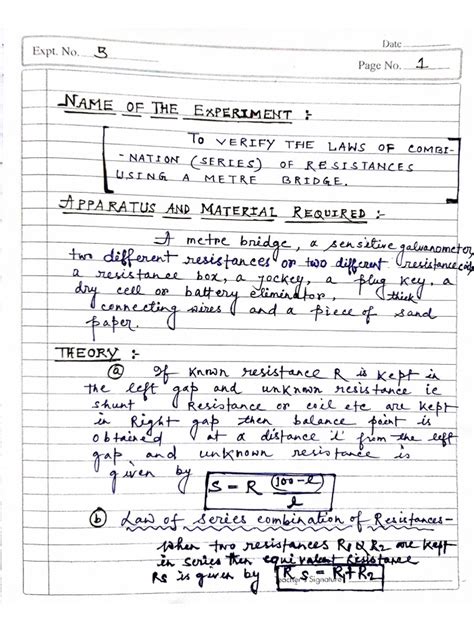 Date
Expt. No. 5
Page No. 1
NAME OF THE EXPERIMENT :-
TO VERIFY THE LAWS OF COMBI-
-NATION (SERIES) OF RESISTANCES
USING A METRE BRIDGE.
APPARATUS AND MATERIAL REQUIRED :-
A metre bridge, a sensitive galvanometer,
two different resistances or two different resistance coils
a resistance box, a jockey, a plug key, a
dry cell or battery eliminator, thick
connecting wires and a piece of sand
paper.
THEORY :-
(a) If known resistance R is kept in
the left gap and unknown resistance ie
shunt Resistance or coil etc are kept
in Right gap then balance point is
obtained at a distance l from the left
gap and unknown resistance is
given by
S = R (100-l)/l
(b) Law of series combination of Resistances-
When two resistances R1 & R2 are kept
in series then equivalent Resistance
RS is given by RS = R1+R2
Teacher's Signature